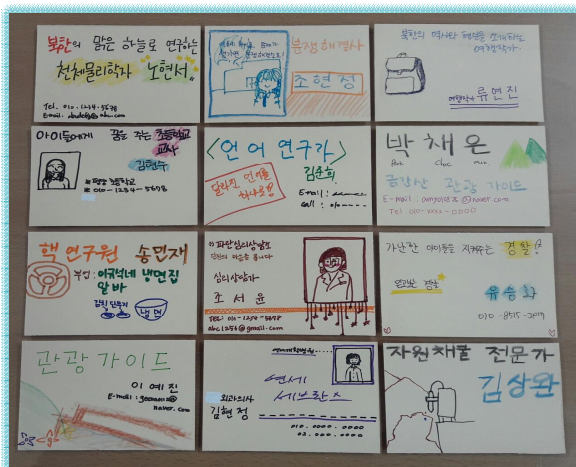 북한의 맑은 하늘로 연구하는
천체물리학자 노현서
Tel. 010-1234-5678
분쟁해결사
조현정
북한의 역사와 현실을 소개하는
여행작가
여행작가 류연진
아이들에게 꿈을 주는 초등학교
교사
김현수
평양 초등학교
010-1234-5678
<언어 연구가>
김순희
달라진 언어를
하나로!!
E-mail:
Call:
박채은
Park Chae
금강산 관광 가이드
E-mail: @naver.com
Tel 010-xxxx-0000
핵 연구원 송민재
부업: 이규석네 냉면집
알바
냉면
심리상담소
당신의 마음을 봅니다
심리상담가
조서윤
TEL: 010-1234-5678
abc1234@gmail.com
가난한 아이들을 지켜주는 경찰!
유승화
010-8515-2017
관광가이드
이예진
E-mail: @
naver.com
연세
세브란스
외과의사
김현정
010.0000.0000
02.000.0000
자원채굴 전문가
김상완